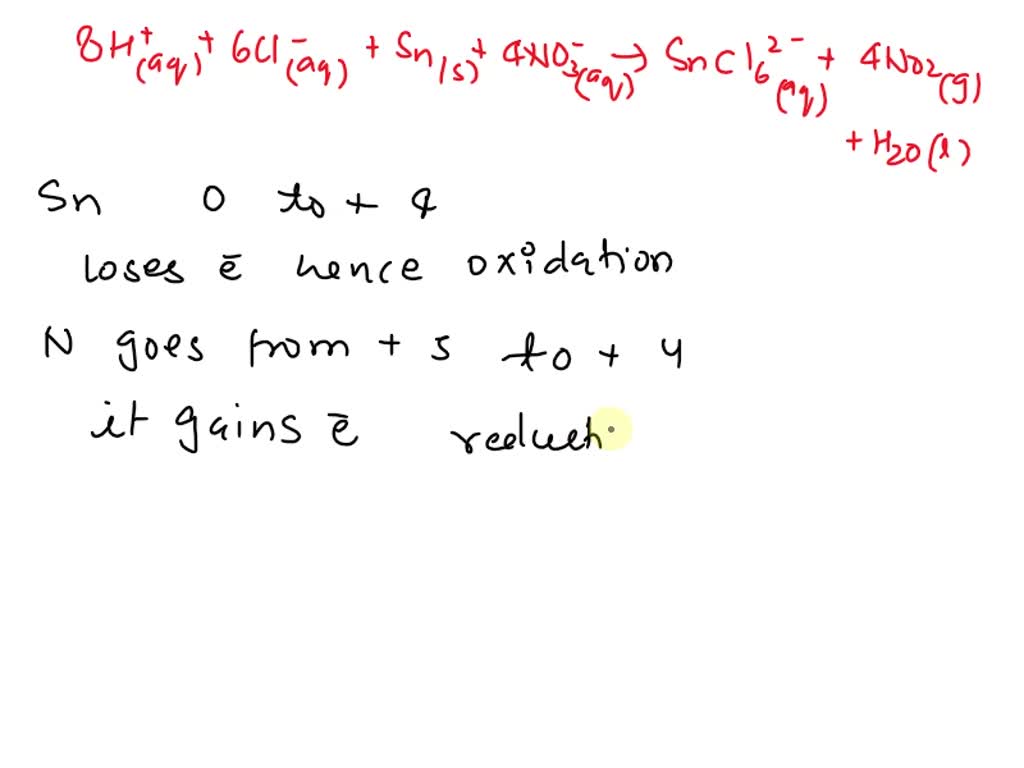 8H⁺(aq) + 6Cl⁻(aq) + Sn(s) + 4NO₃⁻(aq) → SnCl₆²⁻(aq) + 4NO₂(g)
+ H₂O(l)
Sn 0 to + 4
loses ē hence oxidation
N goes from + 5 to + 4
it gains ē reducti